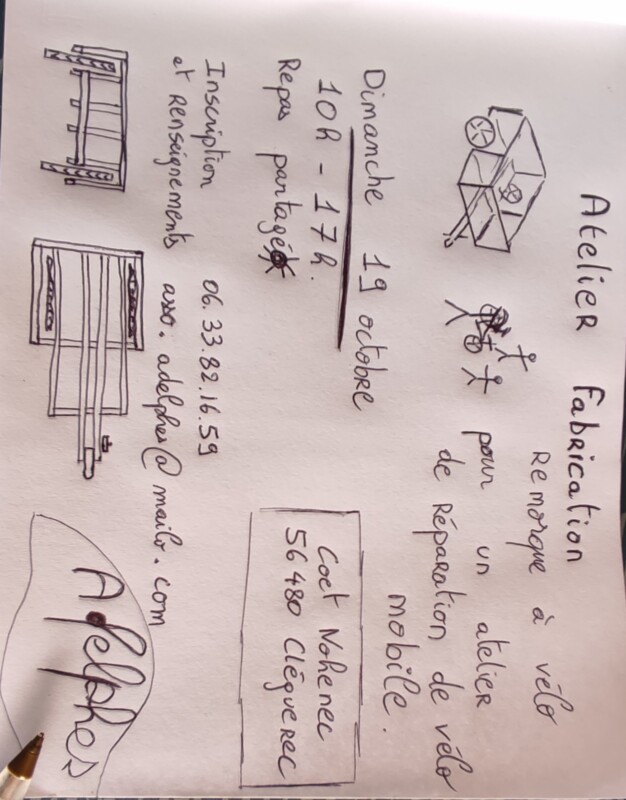 Atelier Fabrication
Remorque à vélo
pour un atelier
de Réparation de vélo
mobile.
Dimanche 19 octobre
10h - 17h.
Repas partagé
Coet Nohenec
56480 Cléguerec
Inscription
et Renseignements
06.33.82.16.59
asso.adelphes@mailo.com
Adelphes